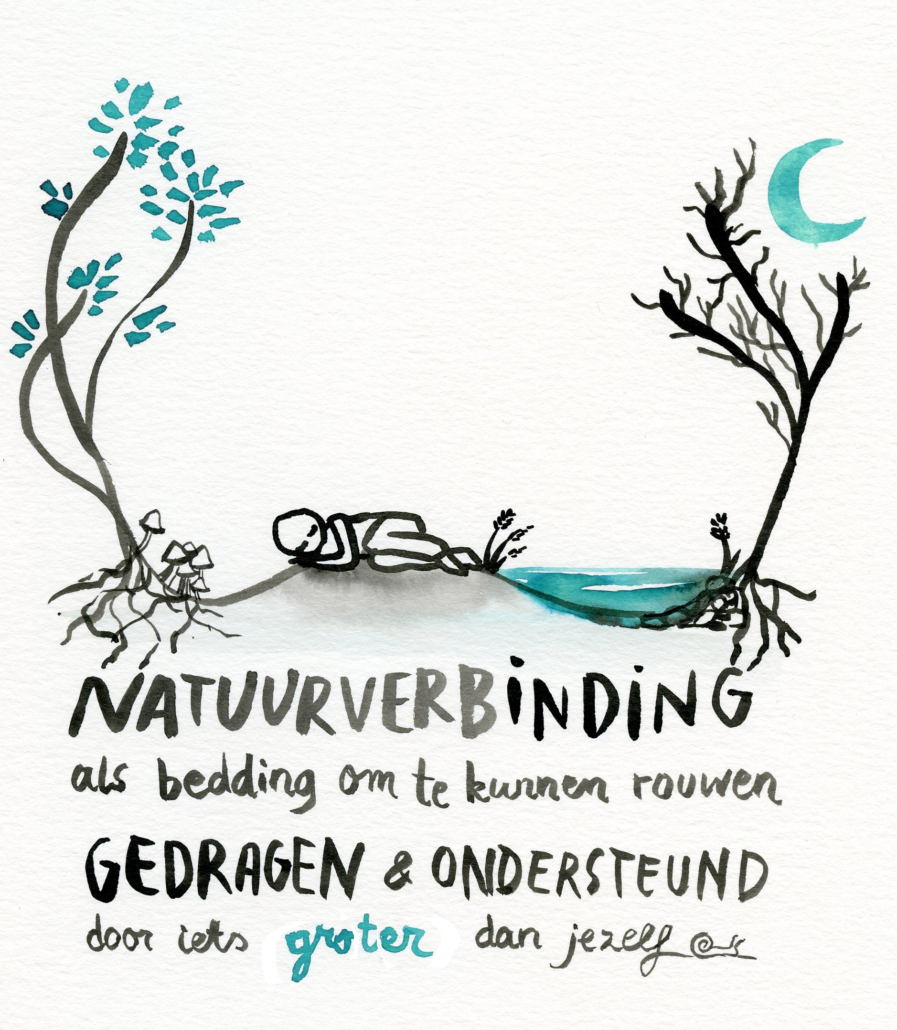 NATUURVERBiNDiNG
als bedding om te kunnen rouwen
GEDRAGEN & ONDERSTEUND
door iets groter dan jezelf